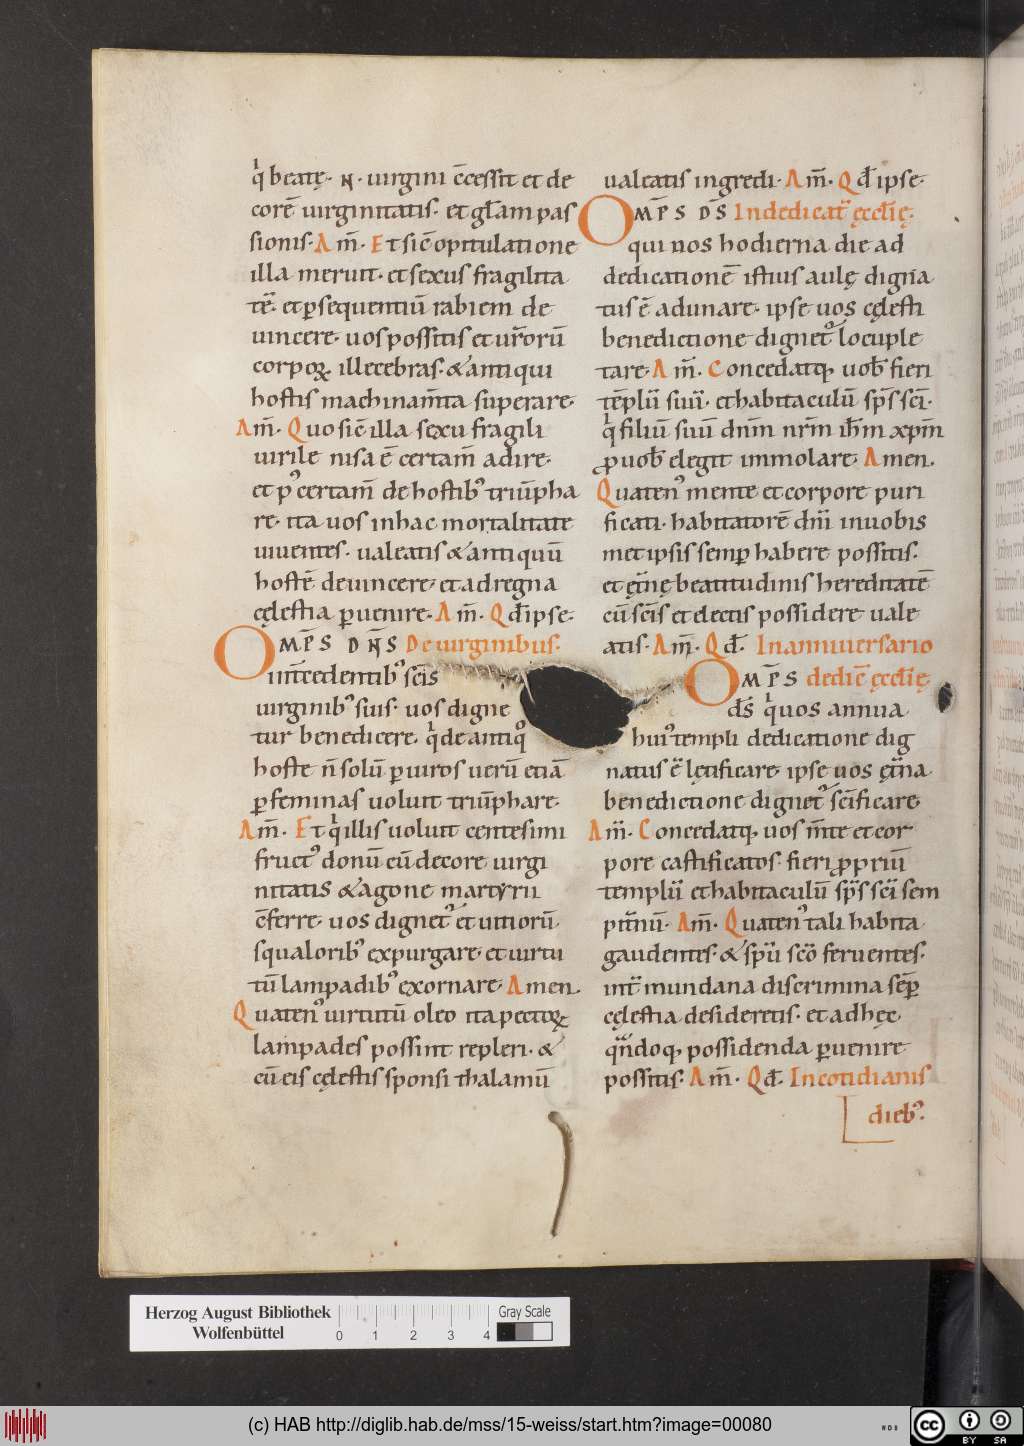 q̇ beatę. N. uirgini c̄cessit et de
corē uirginitatis. et gl̄am pas
sionis. Am̄. Et sic̄ opitulatione
illa meruit. et sexus fragilita
tē. et p̱sequentiū rabiem de
uincere. uos possitis et ur̄orū
corpoꝝ illecebras. & antiqui
hostis machinam̄ta superare.
Am̄. Quo sic̄ illa sexu fragili
uirile nisa ē certam̄ adire.
et pꝰ certam̄ de hostibꝰ triūpha
re. ita uos in hac mortalitate
uiuentes. ualeatis & antiquū
hostē deuincere. et ad regna
cęlestia ꝑuenire. Am̄. Qd̄ ipse.
OMP̄S DN̄S De uirginibus.
int̄cedentibꝰ sc̄is
uirginibꝰ suis. uos digne
tur benedicere. q̇ de antiqͦ
hoste n̄ solū ꝑ uiros uerū etiā
ꝑ feminas uoluit triūphare.
Am̄. Et q̇ illis uoluit centesimi
fructꝰ donū cū decore uirgi
nitatis & agone martyrii
c̄ferre. uos dignet᷑ et uitiorū
squaloribꝰ expurgare. et uirtu
tū lampadibꝰ exornare. Amen.
Quatenꝰ uirtutū oleo ita pectoꝝ
lampades possint repleri. &
cū eis cęlestis sponsi thalamū
ualeatis ingredi. Am̄. Qd̄ ipse.
OMP̄S DS̄ In dedicat̄ ęccl̄ię.
qui nos hodierna die ad
dedicationē istius aulę digna
tus ē adunare. ipse uos cęlesti
benedictione dignet᷑ locuple
tare. Am̄. Concedatqꝫ uob̄ fieri
tēplū suū. et habitaculū sp̄s sc̄i.
q̇ filiū suū dn̄m nr̄m ih̄m xp̄m
ꝓ uob̄ elegit immolare. Amen.
Quatenꝰ mente et corpore puri
ficati. habitatorē dn̄i in uobis
metipsis semꝑ habere possitis.
et ęt̄nę beatitudinis hereditatē
cū sc̄is et electis possidere uale
atis. Am̄. Qd̄. In anniuersario
OMP̄S dedic̄ ęccl̄ię
ds̄ q̇ uos annua
huiꝰ templi dedicatione dig
natus ē lętificare. ipse uos ęt̄na
benedictione dignet᷑ sc̄ificare.
Am̄. Concedatqꝫ uos m̄te et cor
pore castificatos. fieri ꝓpriū
templū et habitaculū sp̄s sc̄i sem
pit̄nū. Am̄. Quatenꝰ tali habita
gaudentes. & sp̄u sc̄o feruentes.
int̄ mundana discrimina sēꝑ
cęlestia desideretis. et ad hęc
qn̄doqꝫ possidenda ꝑuenire
possitis. Am̄. Qd̄. In cotidianis
diebꝰ.
Herzog August Bibliothek
Wolfenbüttel
0 1 2 3 4
Gray Scale
(c) HAB http://diglib.hab.de/mss/15-weiss/start.htm?image=00080
WDB
cc
BY SA